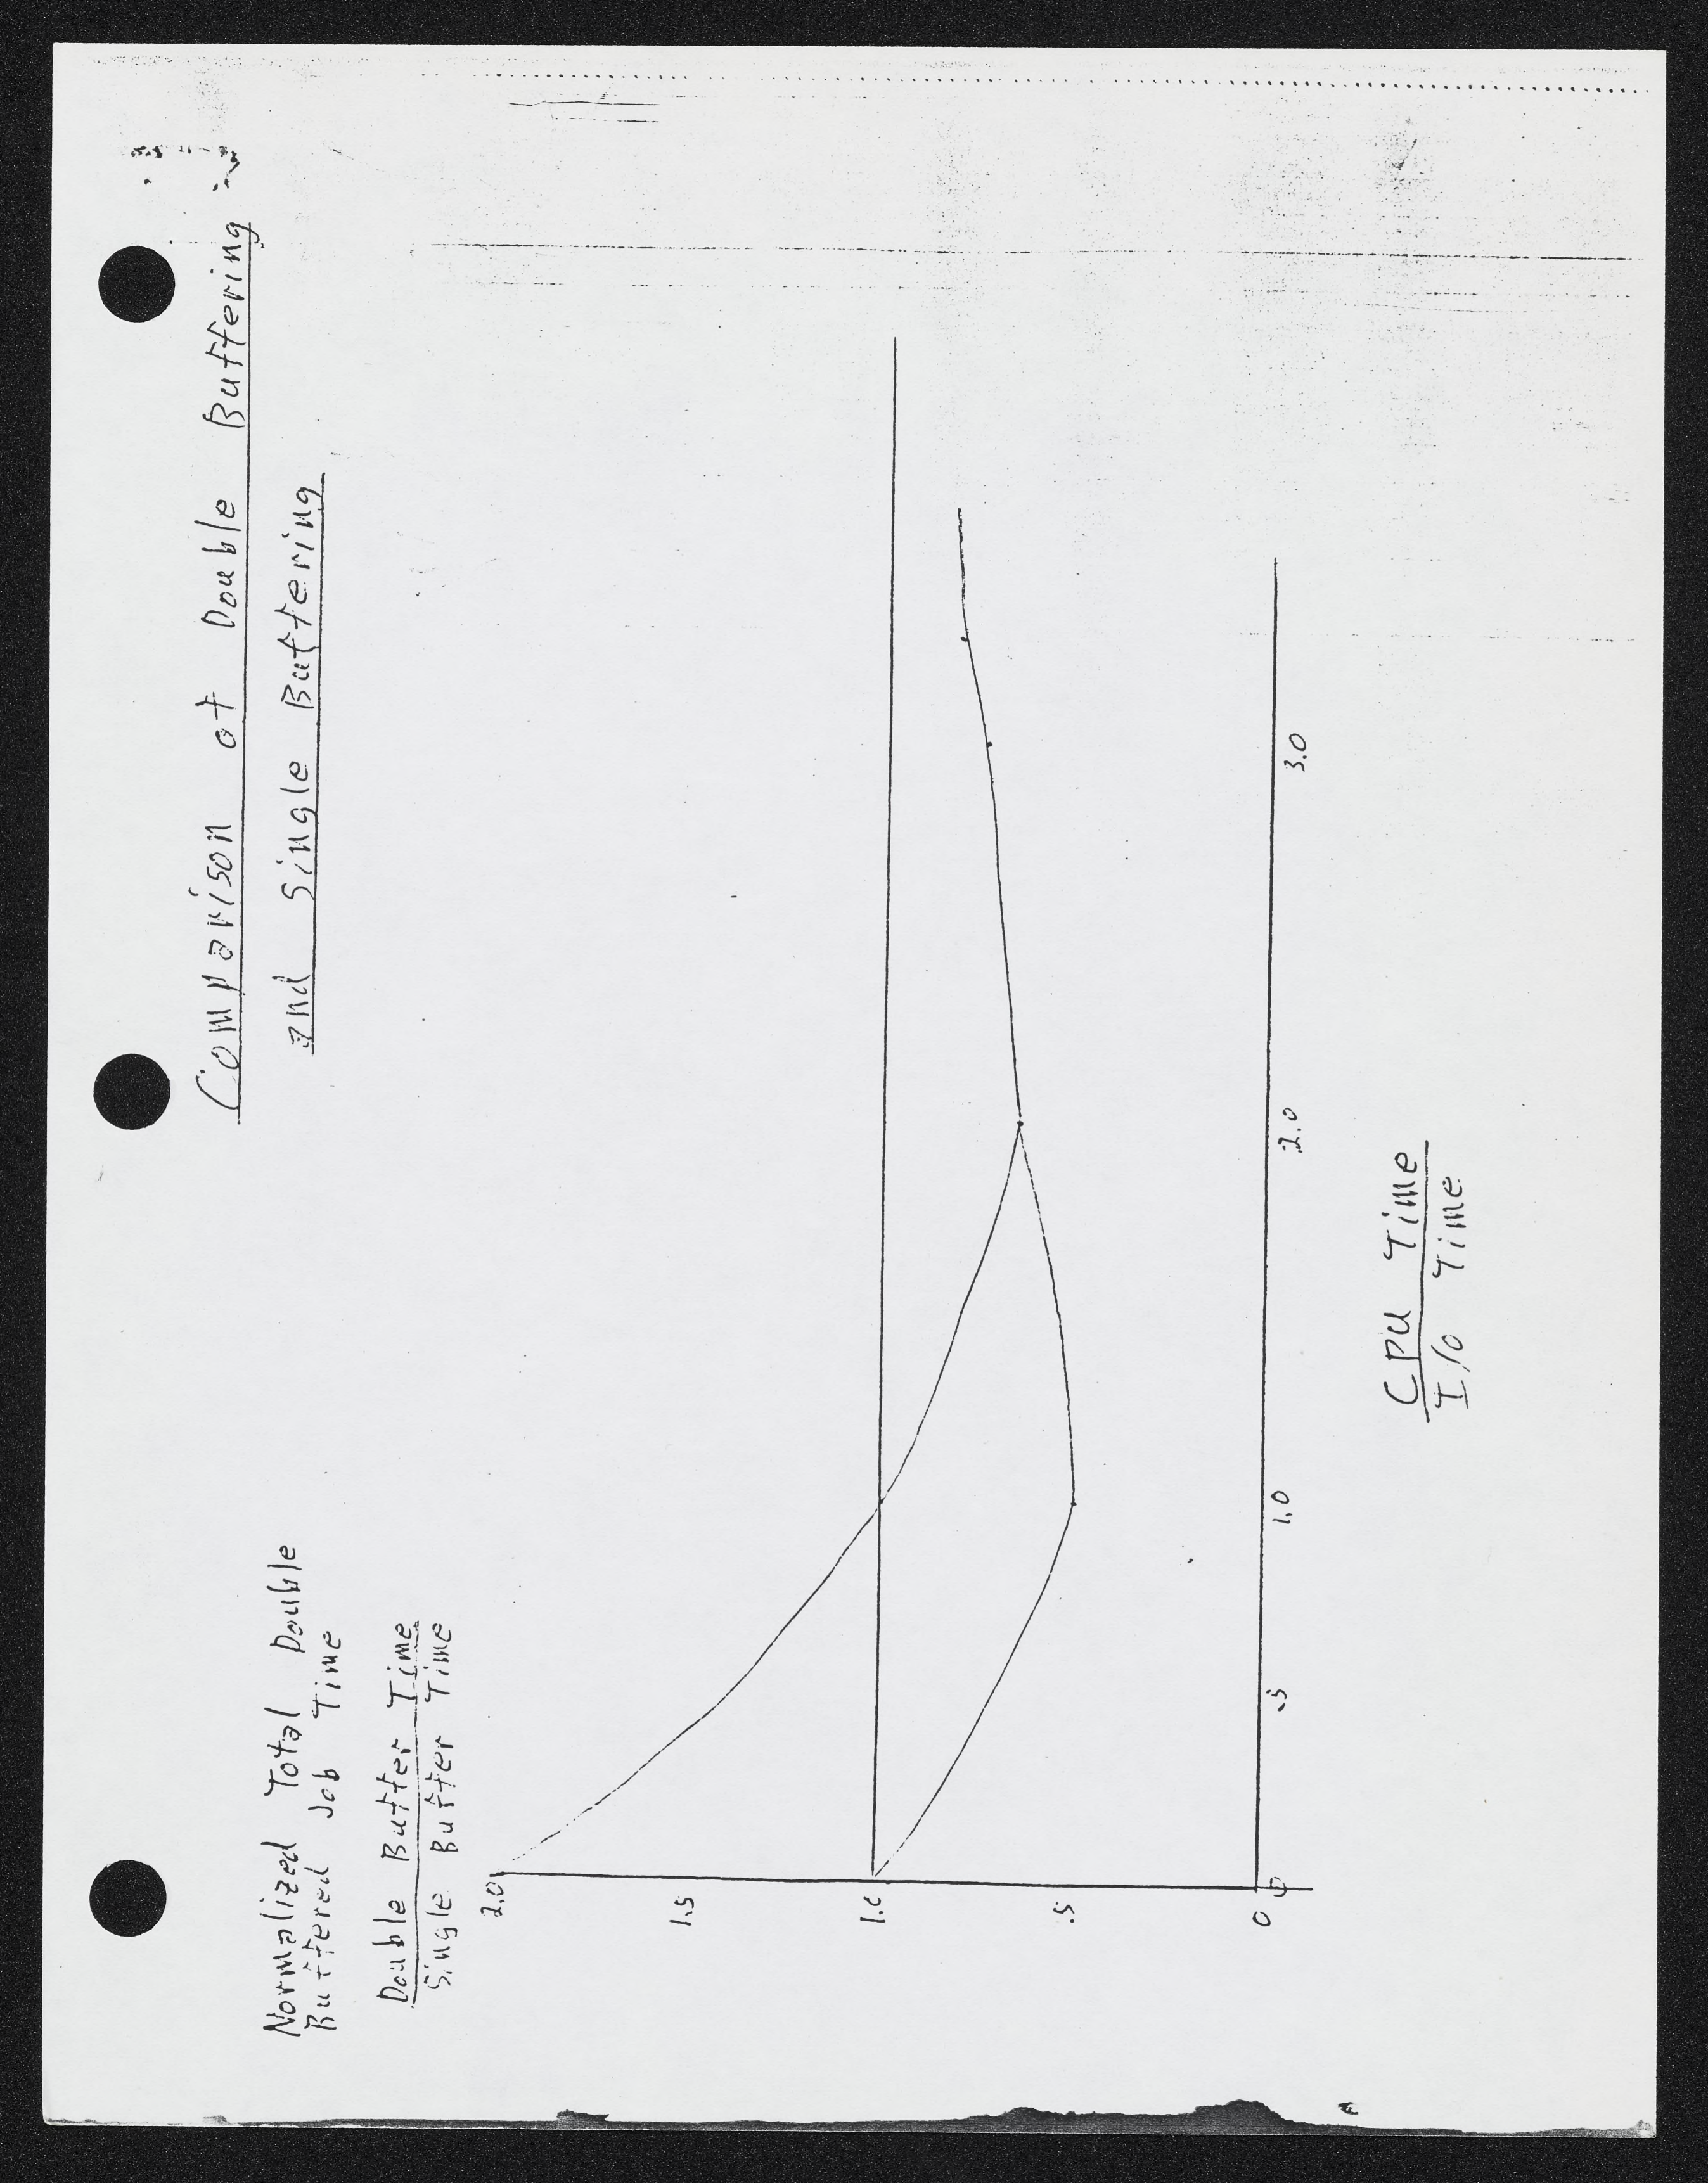 Comparison of Double Buffering
and Single Buffering
Normalized Total Double
Buffered Job Time
Double Buffer Time
Single Buffer Time
2.0
1.5
1.0
.5
0
0
.5
1.0
2.0
3.0
CPU Time
I/O Time